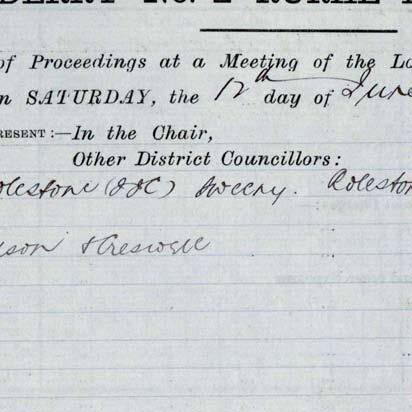 DERRY No. 2 RURAL
of Proceedings at a Meeting of the Lo
n SATURDAY, the 12th day of June
RESENT:—In the Chair,
Other District Councillors:
olestone (JJC) Sweeny. Roleston
son & Creswell